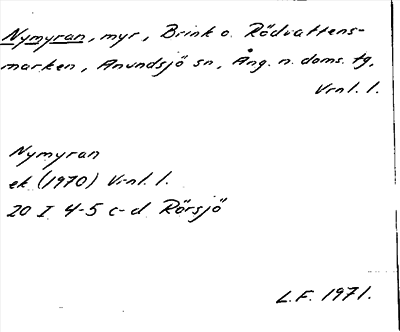 Nymyran, myr, Brink o. Rödvattens-
marken, Anundsjö sn, Ång. n. doms. tg.
Vrnl. l.
Nymyran
ek (1970) Vrnl. l.
20 I 4-5 c-d Rörsjö
L.F. 1971.